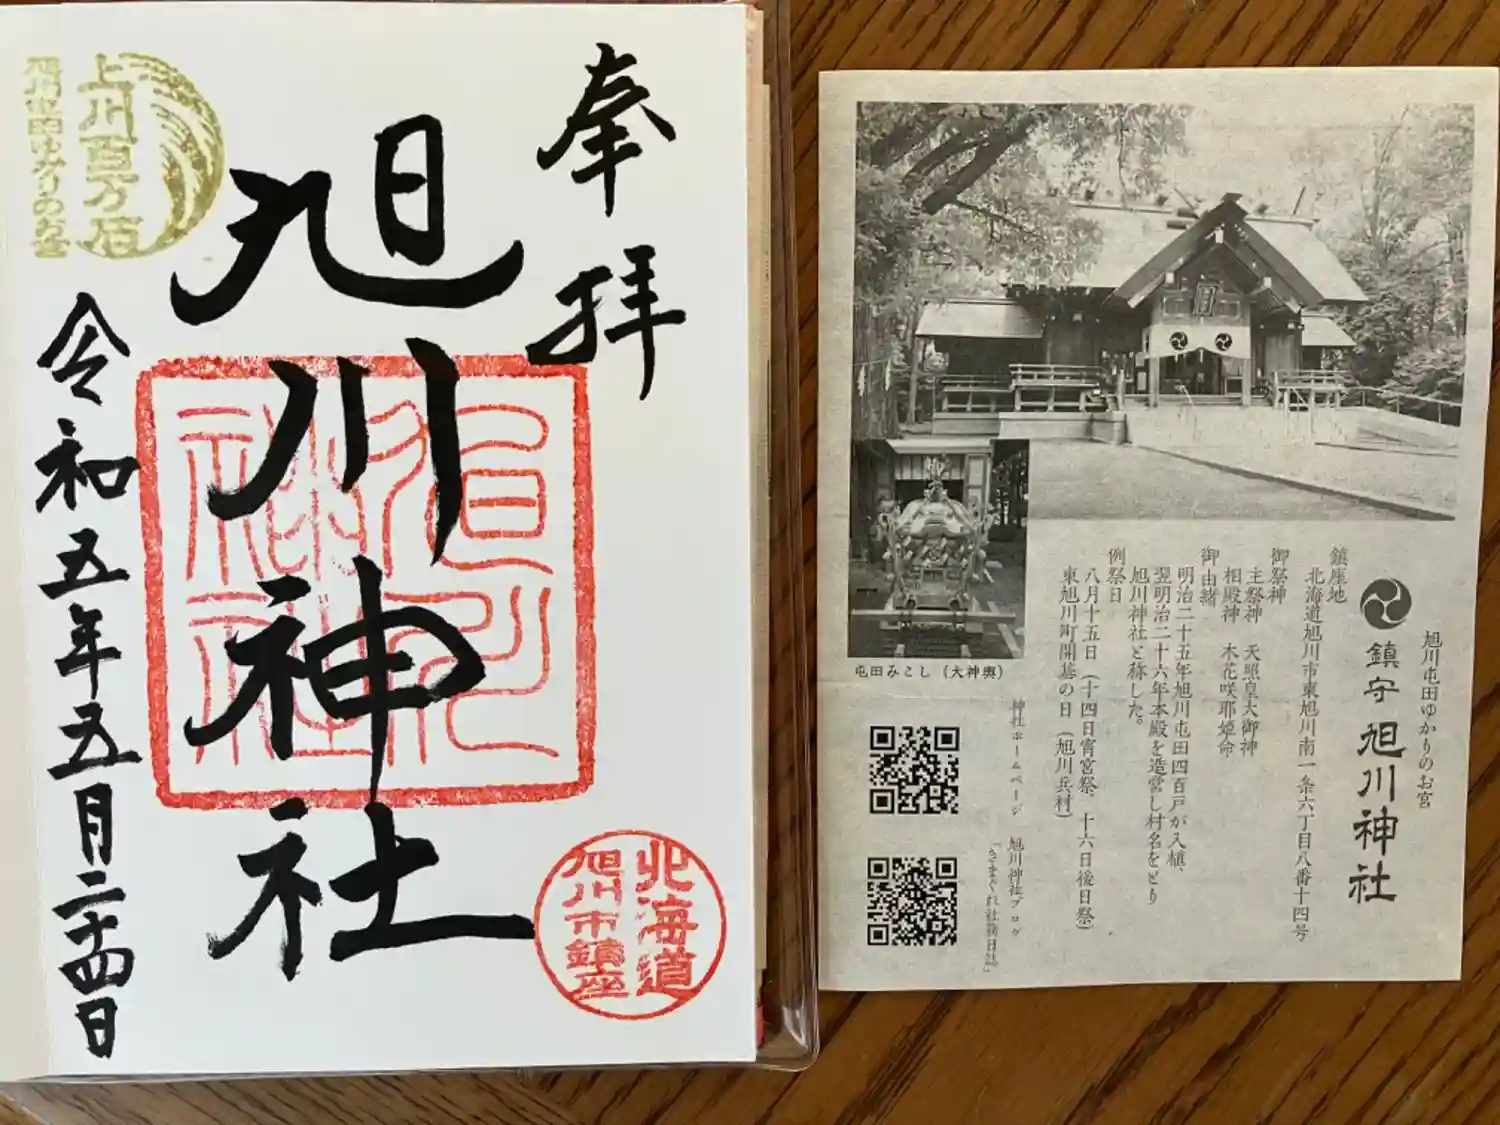 奉拝
旭川神社
令和五年五月二十四日
上川百万石
旭川屯田ゆかりのお宮
旭川神社
北海道
旭川市鎮座
旭川屯田ゆかりのお宮
鎮守 旭川神社
鎮座地
北海道旭川市東旭川南一条六丁目八番十四号
御祭神
主祭神 天照皇大御神
相殿神 木花咲耶姫命
御由緒
明治二十五年旭川屯田四百戸が入植、
翌明治二十六年本殿を造営し村名をとり
旭川神社と称した。
例祭日
八月十五日(十四日宵宮祭、十六日後日祭)
東旭川町開基の日(旭川兵村)
神社ホームページ
旭川神社ブログ
「きまぐれ社務日誌」
屯田みこし(大神輿)